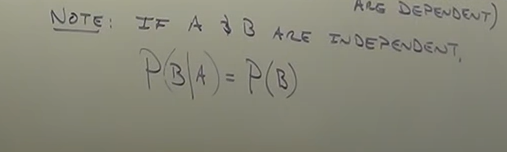 ARE DEPENDENT)
NOTE: IF A & B ARE INDEPENDENT,
P(B|A) = P(B)